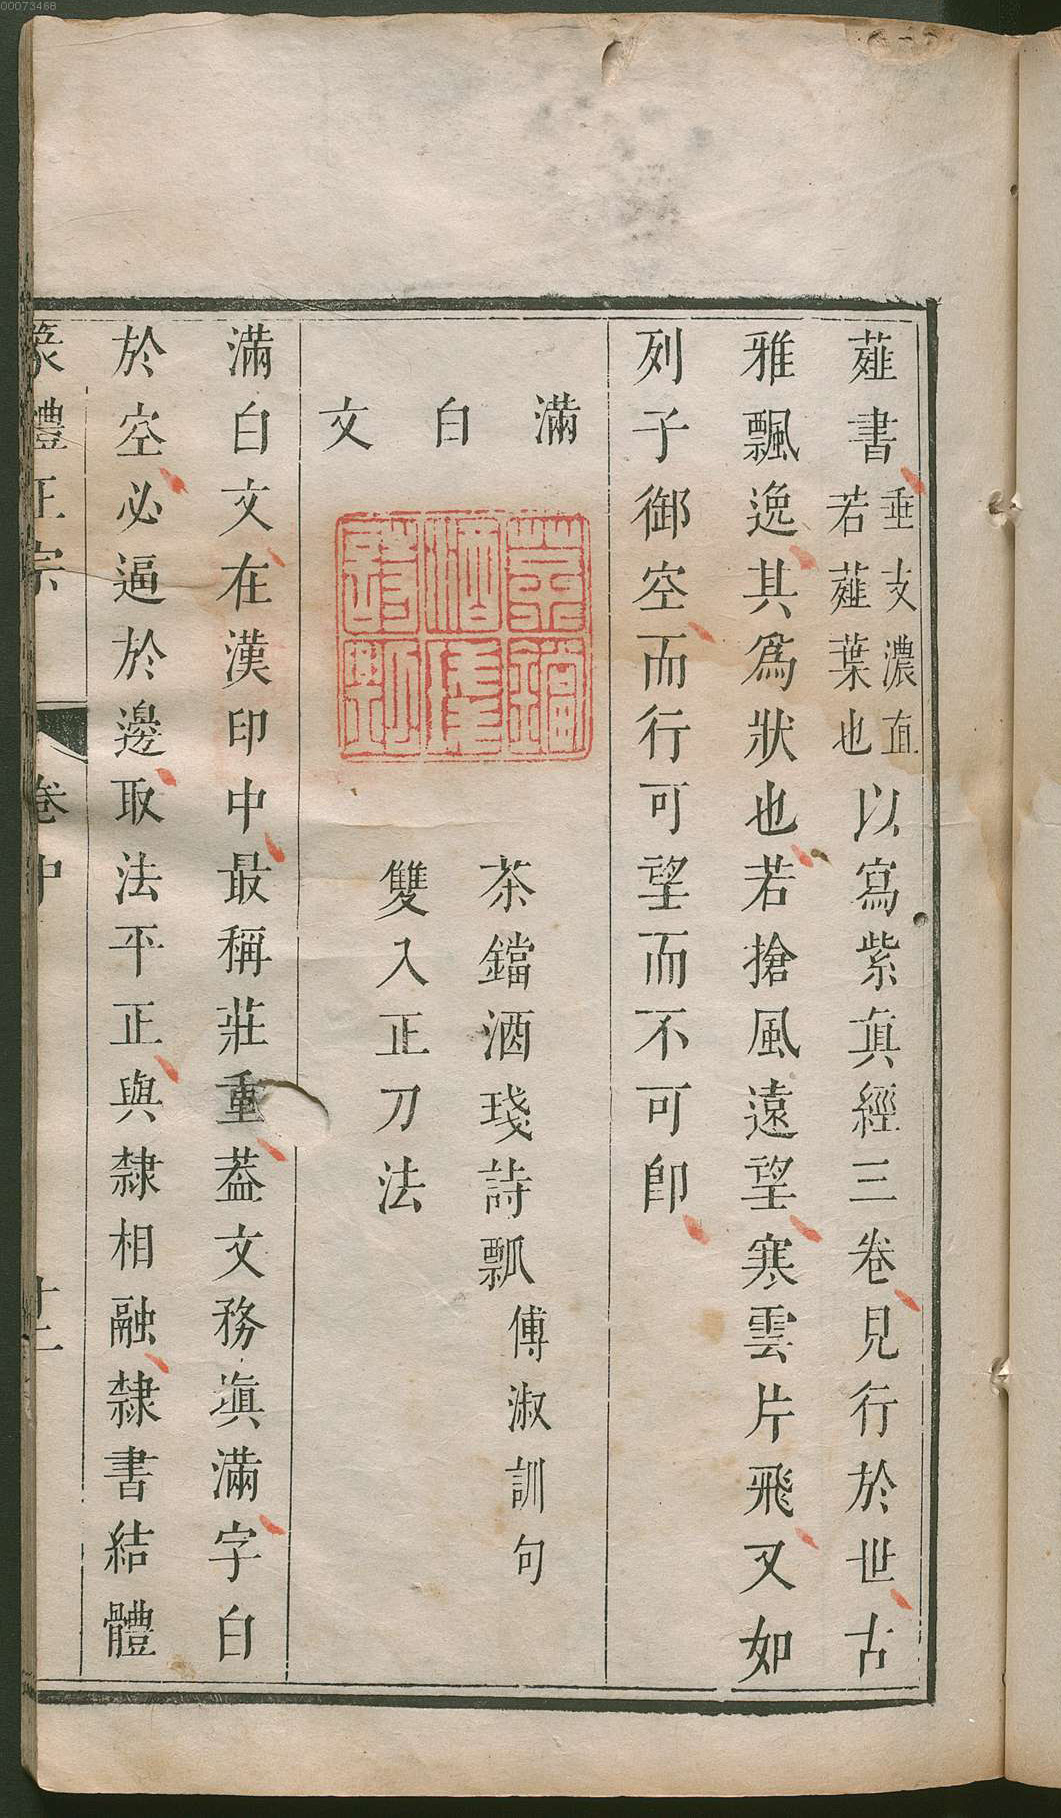 00073468
薤書垂支濃直若薤葉也以寫紫眞經三卷見行於世古
雅飄逸其爲狀也若搶風遠望寒雲片飛又如
列子御空而行可望而不可卽
滿白文
茶鐺酒琖詩瓢傅淑訓句
雙入正刀法
滿白文在漢印中最稱莊重葢文務塡滿字白
於空必逼於邊取法平正與隸相融隸書結體
篆體正宗 卷中 廿二